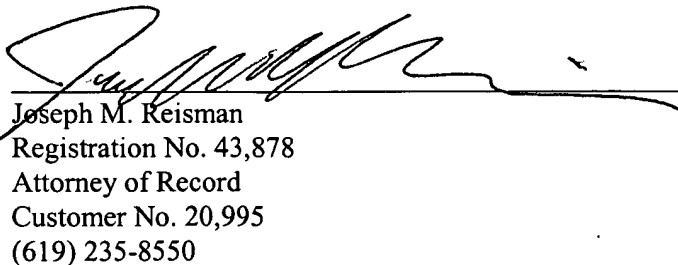 Joseph M. Reisman
Registration No. 43,878
Attorney of Record
Customer No. 20,995
(619) 235-8550